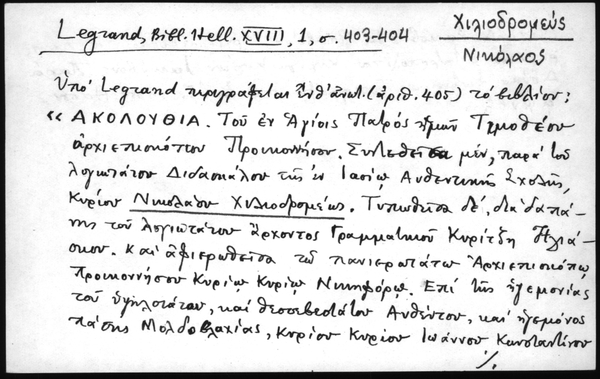 Legrand, Bibl. Hell. XVIII, 1, σ. 403-404
Χιλιοδρομεύς
Νικόλαος
Ὑπό Legrand περιγράφεται ἐνθ᾽ἀνωτ. (ἀριθ. 405) τό βιβλίον:
« ΑΚΟΛΟΥΘΙΑ. Τοῦ ἐν Ἁγίοις Πατρός ἡμῶν Τιμοθέου
ἀρχιεπισκόπου Προικοννήσου. Συντεθεῖσα μέν, παρά τοῦ
λογιωτάτου Διδασκάλου τῆς ἐν Ἰασίῳ Αὐθεντικῆς Σχολῆς,
Κυρίου Νικολάου Χιλιοδρομέως. Τυπωθεῖσα δέ, διά δαπά-
νης τοῦ λογιωτάτου ἄρχοντος Γραμματικοῦ Κυρίτζη Ἠλιά-
σκου. Καί ἀφιερωθεῖσα τῷ πανιερωτάτῳ Ἀρχιεπισκόπῳ
Προικοννήσου Κυρίῳ Κυρίῳ Νικηφόρῳ. Ἐπί τῆς ἡγεμονίας
τοῦ ὑψηλοτάτου, καί θεοσεβεστάτου Αὐθέντου, καί ἡγεμόνος
πάσης Μολδοβλαχίας, Κυρίου Κυρίου Ἰωάννου Κωνσταντίνου
./.